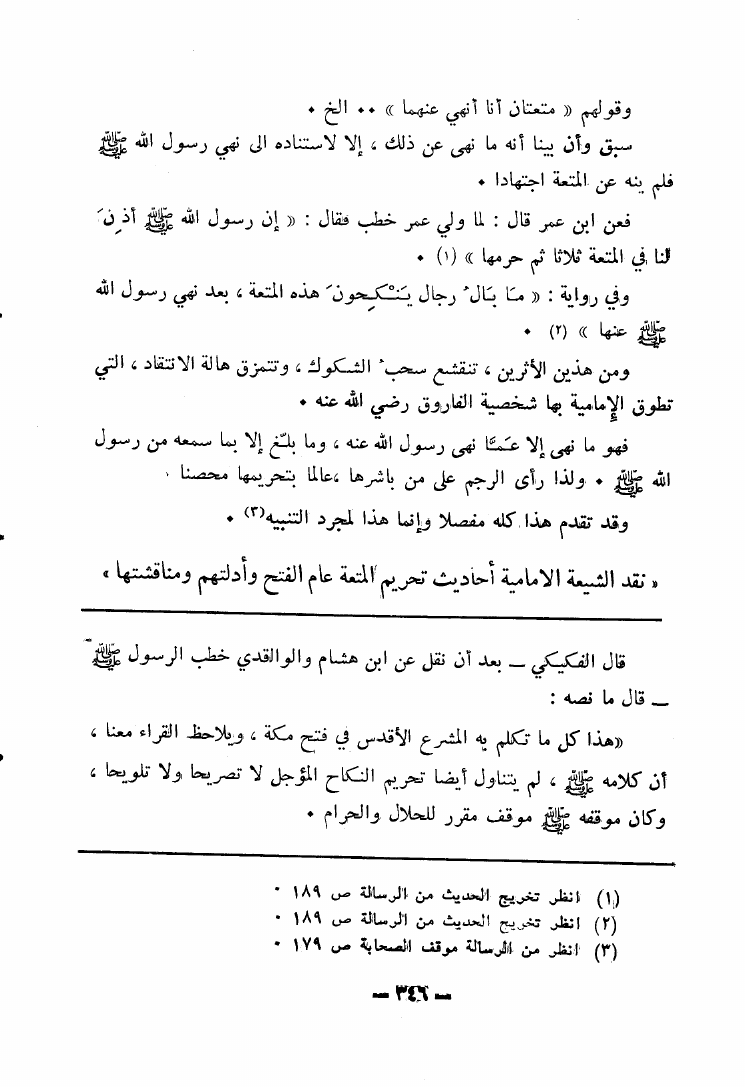 وقولهم « متعتان أنا أنهي عنهما » ٠٠ الخ ٠
سبق وأن بينا أنه ما نهى عن ذلك ، إلا لاستناده الى نهي رسول الله ﷺ
فلم ينه عن المتعة اجتهادا ٠
فعن ابن عمر قال : لما ولي عمر خطب فقال : « إن رسول الله ﷺ أذِنَ
لنا في المتعة ثلاثا ثم حرمها » (١) ٠
وفي رواية : « مَا بَالُ رجال يَنْكِحونَ هذه المتعة ، بعد نهي رسول الله
ﷺ عنها » (٢) ٠
ومن هذين الأثرين ، تنقشع سحبُ الشكوك ، وتتمزق هالة الانتقاد ، التي
تطوق الإمامية بها شخصية الفاروق رضي الله عنه ٠
فهو ما نهى إلا عَمَّا نهى رسول الله عنه ، وما بلّغ إلا بما سمعه من رسول
الله ﷺ ٠ ولذا رأى الرجم على من باشرها ،عالما بتحريمها محصنا ٠
وقد تقدم هذا كله مفصلا وإنما هذا لمجرد التنبيه(٣) ٠
« نقد الشيعة الامامية أحاديث تحريم المتعة عام الفتح وأدلتهم ومناقشتها »
قال الفكيكي ــ بعد أن نقل عن ابن هشام والوالقدي خطب الرسول ﷺ
ــ قال ما نصه :
«هذا كل ما تكلم به المشرع الأقدس في فتح مكة ، ويلاحظ القراء معنا ،
أن كلامه ﷺ ، لم يتناول أيضا تحريم النكاح المؤجل لا تصريحا ولا تلويحا ،
وكان موقفه ﷺ موقف مقرر للحلال والحرام ٠
(١) انظر تخريج الحديث من الرسالة ص ١٨٩ ٠
(٢) انظر تخريج الحديث من الرسالة ص ١٨٩ ٠
(٣) انظر من الرسالة موقف الصحابة ص ١٧٩ ٠
ــ ٣٤٦ ــ